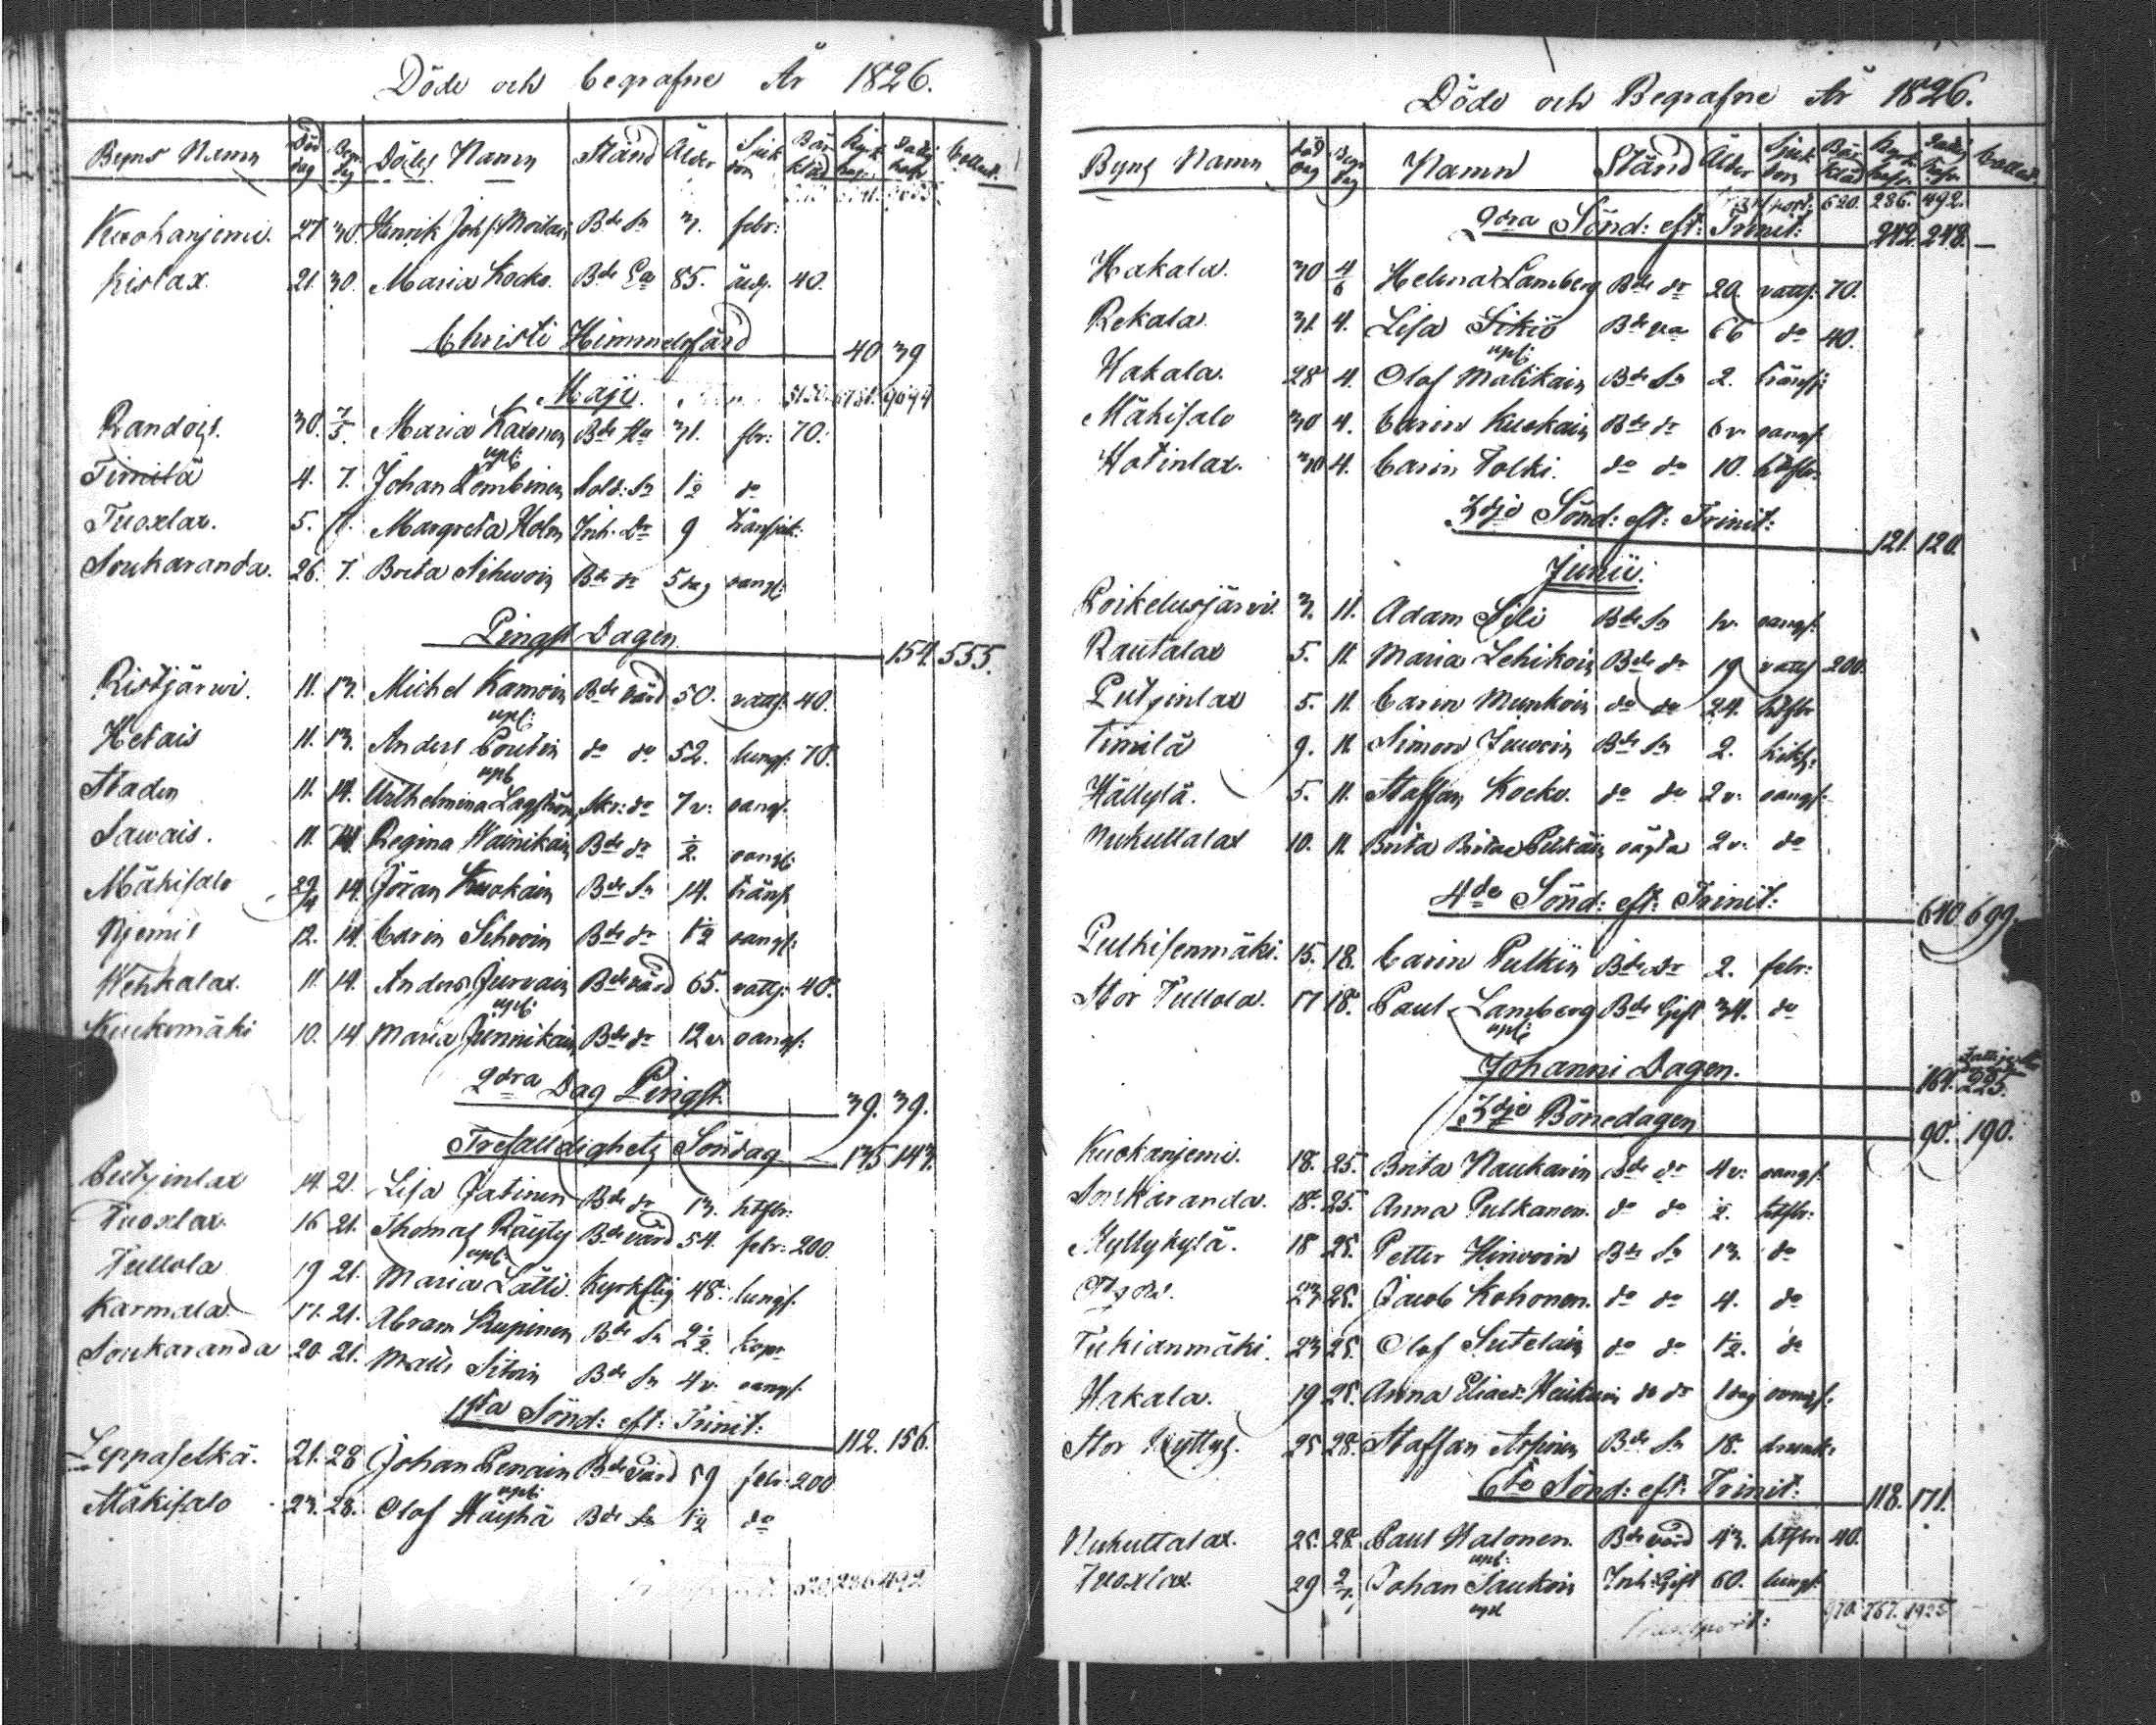 Döde och begrafne År 1826.
Byns Namn Död dag Begr. dag Dödes Namn Stånd Ålder Sjuk dom Bår kläd Kyrk Fattig Collect.
Kuokanjemi. 27 30. Henrik Johs: Moilain Bde Sn 3. febr:
Kislax. 21. 30. Maria Kocko. Bde Ea 85. åldr. 40.
Christi Himmelsfärd 40 39
Maji.
Randois. 30. 7/5. Maria Kaxonen Bde 31. fbr: 70.
upl:
Timilä 4. 7. Johan Lembinen Sold: Sn 1½ do
Tuoxlax. 5. 7. Margreta Holm Inh. Dr 9 bränsjuk:
Soukaranda. 26. 7. Brita Sihvoin Bde dr 5 dag oangf:
Pingst Dagen 154. 555.
Ristjärwi. 11. 13. Michel Kamoin Bde värd 50. vatts: 40.
upl:
Hetais 11. 13. Anders Poutin do do 52. lungs: 70.
upl.
Staden 11. 14. Wilhelmina Lagström Skr: dr 7 v: oangf:
Sawais. 11. 14. Regina Wainikain Bde dr ½. oangf:
Mäkisalo 29/4 14. Jöran Kuokain Bde Sn 14. bränsj
Njemis 12. 14. Carin Sihvoin Bde dr 1½ oangf:
Wehkalax. 11. 14. Anders Jurvain Bde värd 65. vatts: 40.
upl:
Kiukomäki 10. 14 Maria Junnikain Bde dr 12 v. oangf:
2dra Dag Pingst. 39. 39.
Trefalldighets Söndag 135 143.
Putjinlax 14. 21. Lisa Jatinen Bde dr 13. hetsfbr:
Tuoxlax. 16 21. Thomas Räyty Bde värd 54. febr: 200.
upl:
Tullola 19 21. Maria Lätti. Kyrkstig 48. lungs.
Karmala. 17. 21. Abram Rupinen Bde Sn 2½ kopr
Soukaranda 20. 21. Matts Sitoin Bde Sn 4 v. oangf.
1sta Sönd: eft: Trinit: 112. 156.
Leppäselkä. 21. 28 Johan Penain Bde värd 59 febr: 200
upl:
Mäkisalo 23. 28. Olof Häyhä Bde Sn 1½ do
520 286 492
Döde och Begrafne År 1826.
Byns Namn Död dag Begr dag Namn Stånd Ålder Sjuk dom Bår kläd Kyrk Fattig Collect.
Transport: 520. 286. 492.
2dra Sönd: eft: Trinit: 242. 248.
Hakala. 30 4/6 Helena Lamberg Bde dr 20. vatts: 70.
Rekala. 31. 4. Lisa Sikiö Bde 66 do 40.
upl:
Hakala. 28 4. Olof Malikain Bde Sn 2. bränsj:
Mäkisalo 30 4. Carin Kuokain Bde dr 6 v. oangf.
Hotinlax. 30 4. Carin Tolki. do do 10. hetsfbr.
3dje Sönd: eft: Trinit: 121. 120.
Junii.
Poikelusjärvi. 3. 11. Adam Sili Bde Sn oangf.
Rautalax 5. 11. Maria Lehikoin Bde dr 19 vatts 200.
Putjinlax 5. 11. Carin Munkoin do do 24. hetsfbr
Timilä 9. 11. Simon Juvoin Bde Sn 2. kikh:
Hällylä. 5. 11. Staffan Kocko. do do 2 v. oangf:
Nukuttalax 10. 11. Brita Britas Pitkäin oägta 2 v: do
4de Sönd: eft: Trinit: 640 699.
Pulkisenmäki. 15. 18. Carin Pulkin Bde Dr 2. febr:
Stor Tullola. 17 18. Paul Lamberg Bde Gift 34. do
upl:
Johanni Dagen. 164. 225.
3dje Bönedagen 90. 190.
Kuokanjemi. 18. 25. Brita Naukarin Bde dr 4 v: oangf.
Soukaranda. 18. 25. Anna Pulkanen. do do ½. hetsfbr:
Myllykylä. 18 25. Petter Hinvoin Bde Sn 13. do
23 25. Jacob Kohonen. do do 4. do
Tukianmäki. 23 25. Olof Sutelain do do 1½. do
Hakala. 19 25. Anna Eliaed: Heikinoin do do 1 dag oangf:
Stor 25 28. Staffan Arpinen Bde Sn 18. drunk:
6te Sönd: eft: Trinit: 118. 171.
Nukuttalax. 25. 28. Paul Halonen. Bde värd 43. hetsfbr 40.
upl:
Tuoxlax. 29 2/7 Johan Taukoin Inh: Gift 60. lungs.
upl
Transport: 970. 767. 1925